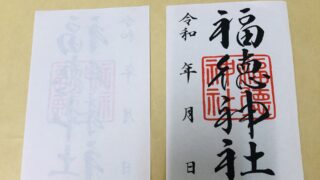 福徳神社
令和 年 月 日